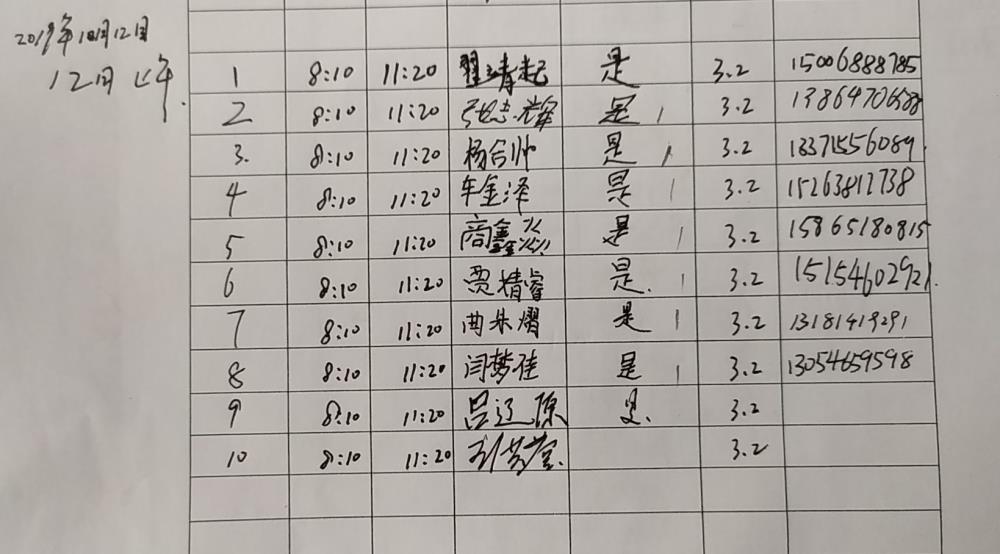 2019年10月12日
12日上午
1 8:10 11:20 翟靖起 是 3.2 15006888785
2 8:10 11:20 张志辉 是 3.2 13864706588
3. 8:10 11:20 杨合帅 是 3.2 13371556089
4 8:10 11:20 车金泽 是 3.2 15263812738
5 8:10 11:20 商鑫焱 是 3.2 15865180815
6 8:10 11:20 贾精睿 是. 3.2 15154602921
7 8:10 11:20 曲朱熠 是 3.2 13181419291
8 8:10 11:20 闫梦佳 是 3.2 13054659598
9 8:10 11:20 吕辽原 是. 3.2
10 8:10 11:20 3.2